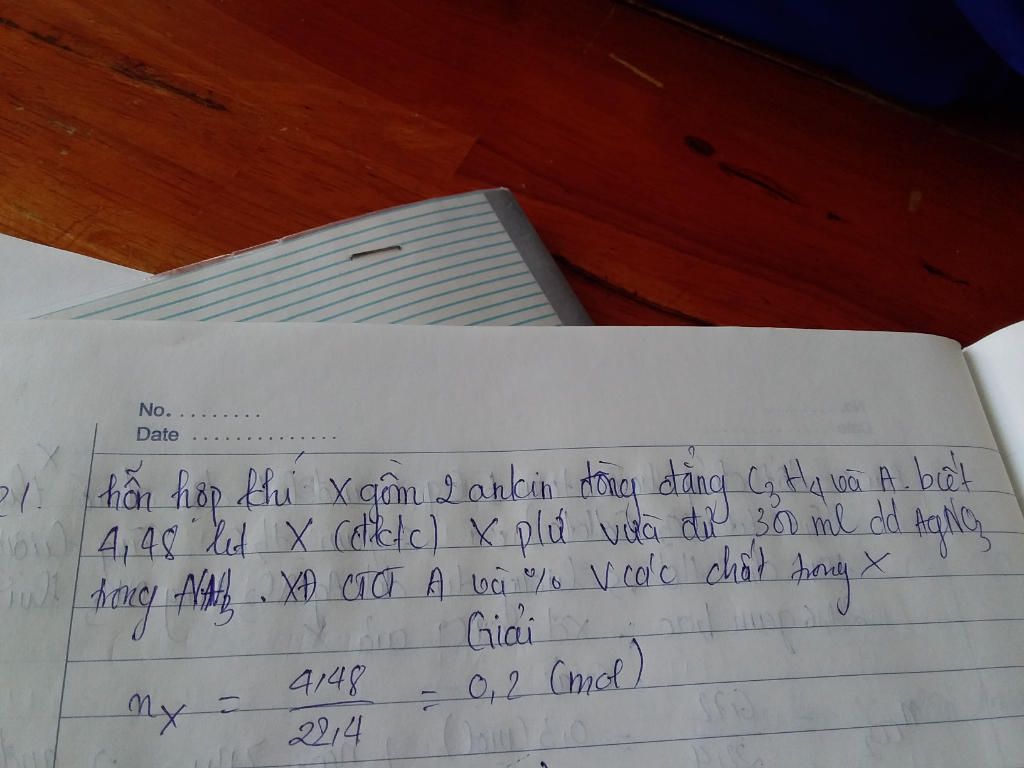 No. .........
Date ...............
21. hỗn hợp khí X gồm 2 ankin đồng đẳng C3H4 và A. biết
4,48 lít X (đktc) X pứ vừa đủ 300 ml dd AgNO3
trong NH3. XĐ CTCT A và % V các chất trong X
Giải
nX = 4,48 / 22,4 = 0,2 (mol)